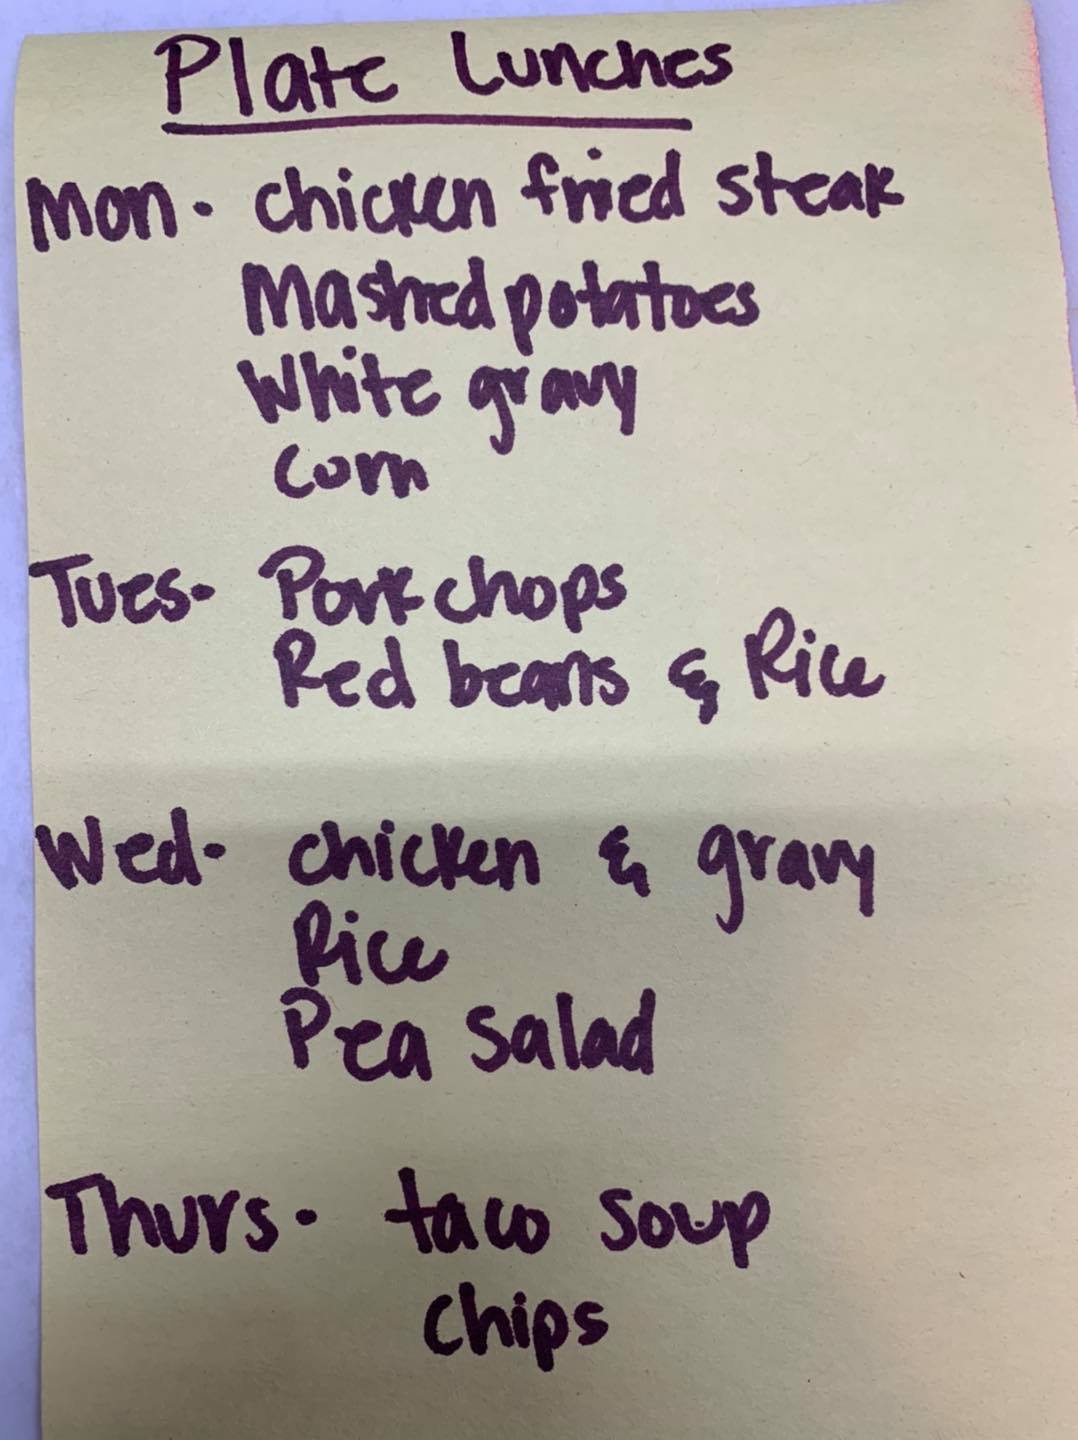 Plate Lunches
Mon- chicken fried steak
Mashed potatoes
White gravy
Corn
Tues- Pork chops
Red beans & Rice
Wed- chicken & gravy
Rice
Pea salad
Thurs- taco soup
Chips